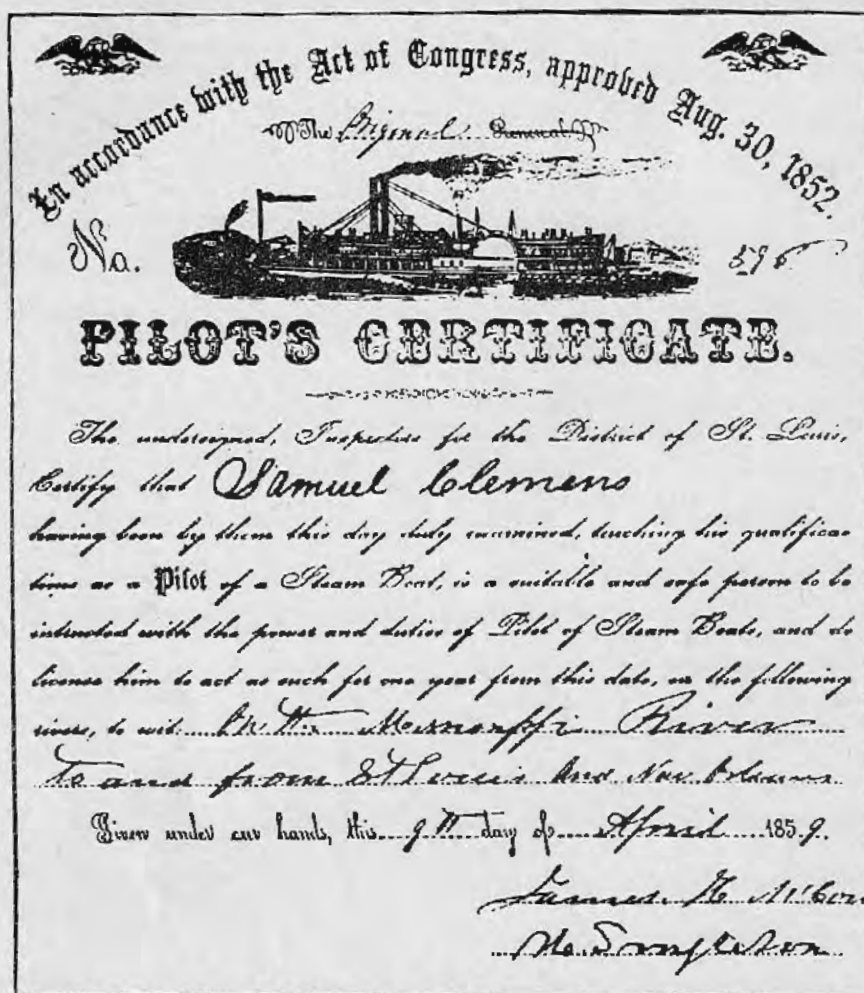 In accordance with the Act of Congress, approved Aug. 30, 1852.
The Original Renewal
No. 596
PILOT'S CERTIFICATE.
The undersigned, Inspectors for the District of St. Louis,
Certify that Samuel Clemens
having been by them this day duly examined, touching his qualifica-
tions as a Pilot of a Steam Boat, is a suitable and safe person to be
intrusted with the power and duties of Pilot of Steam Boats, and do
license him to act as such for one year from this date, on the following
rivers, to wit: On the Mississippi River
To and from St Louis And New Orleans
Given under our hands, this 9th day of April 1859.
James H. McCor
Singleton